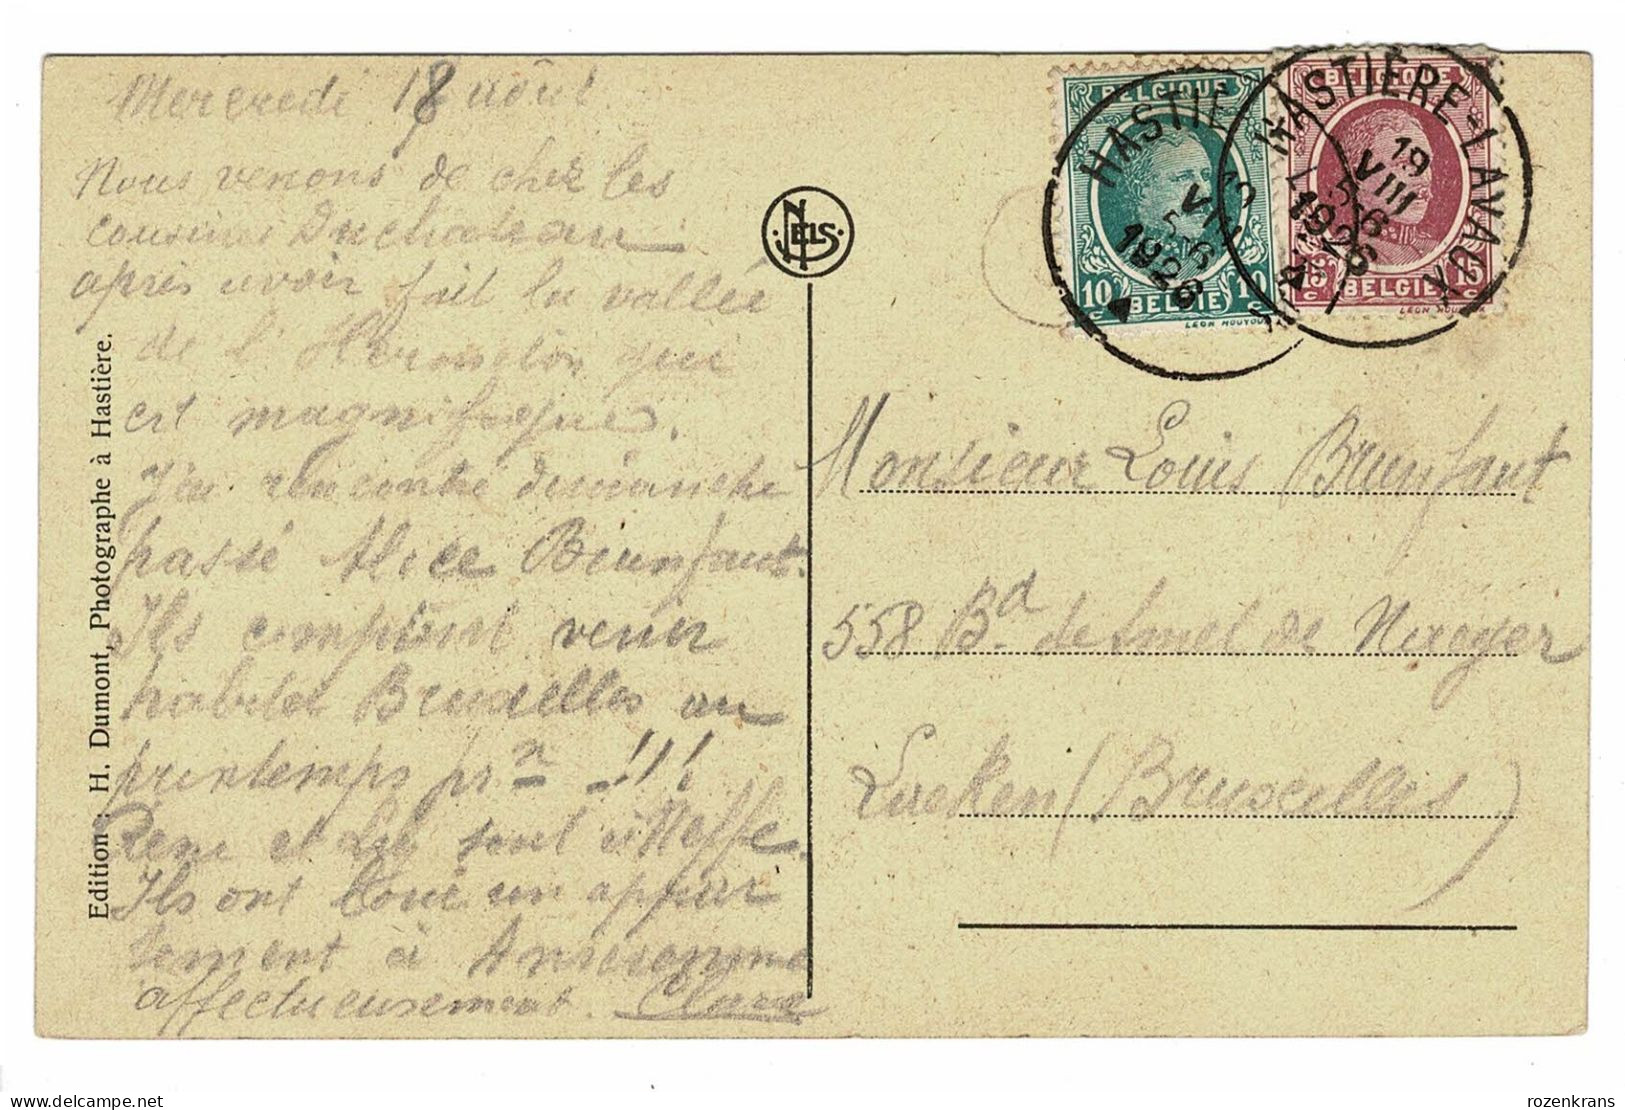 Mercredi 18 août
Nous venons de chez les
cousins Duchateau
après avoir fait la vallée
de l'Hermeton qui
est magnifique.
J'ai rencontré dimanche
passé Alice Brunfaut.
Ils comptent venir
habiter Bruxelles au
printemps prn !!!
René et sont à Neffe.
Ils ont loué un appar
tement à Anseremme
affectueusement. Clara
Edition : H. Dumont, Photographe à Hastière.
NELS
BELGIQUE
10 c BELGIE 10 c
HASTIÈRE-LAVAUX
1926
BELGIQUE
15 c BELGIE 15 c
HASTIÈRE-LAVAUX
19
VIII
1926
Monsieur Louis Brunfaut
558 Bd. de Smet de Naeyer
Laeken (Bruxelles)
delcampe.net
rozenkrans